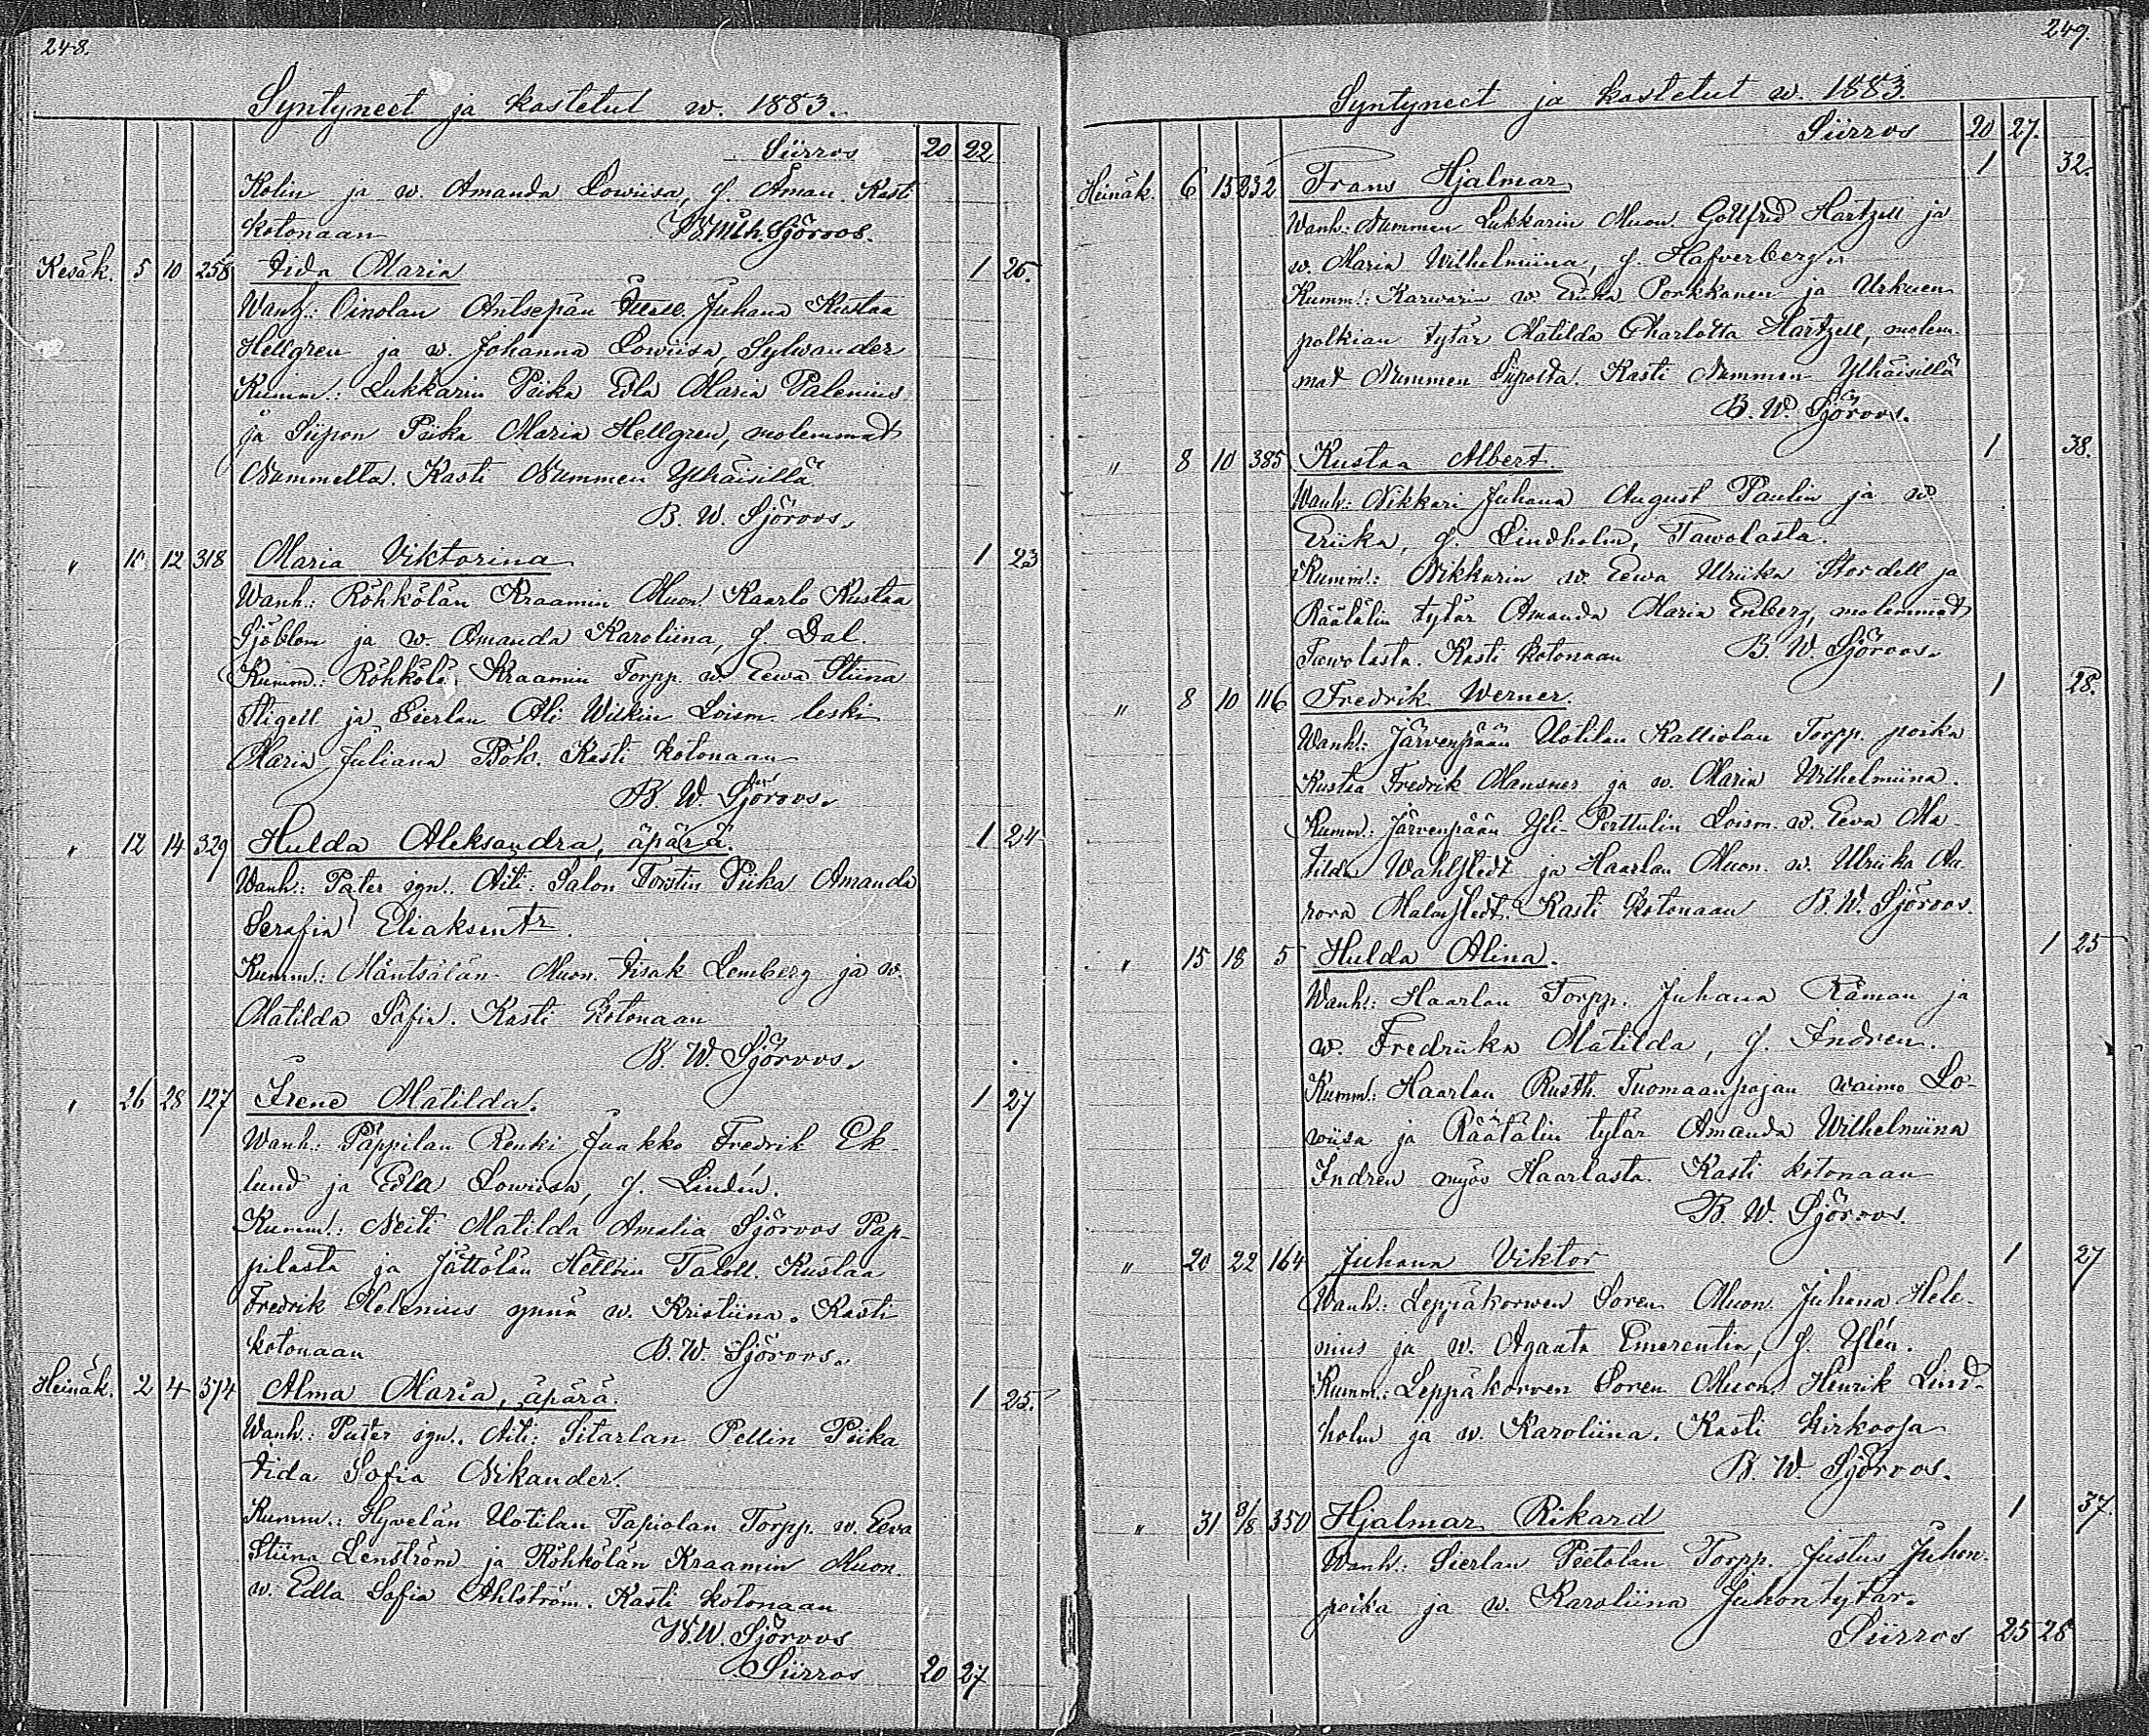 248.
Syntyneet ja kastetut w. 1883.
Siirros 20 22
Kolin ja w. Amanda Lowiisa, f. Åman. Kasti
kotonaan B. Wilh. Sjöroos.
Kesäk. 5 10 258 Iida Maria 1 26.
Wanh.: Oinolan Antsepän Juhana Kustaa
Hellgren ja w. Johanna Lowiisa, Sylwander
Kumm.: Lukkarin Piika Edla Maria Palenius
ja Siipon Piika Maria Hellgren, molemmat
Nummelta. Kasti Nummen Ylhäisillä
B. W. Sjöroos.
" 10 12 318 Maria Viktorina 1 23
Wanh.: Röhkölän Kraamin Muon. Kaarlo Kustaa
Sjöblom ja w. Amanda Karoliina, f. Dal.
Kumm.: Röhkölä. Kraamin Torpp. w. Eewa Stiina
Stigell ja Sierlan Ali Wiikin Loism. leski
Maria Juliana Böh. Kasti kotonaan
B. W. Sjöroos.
" 12 14 329 Hulda Aleksandra, äpärä. 1 24
Wanh.: Pater ign. Äiti: Salon Torstin Piika Amanda
Serafia Eliaksentr.
Kumm.: Mäntsälän Muon. Iisak Lemberg ja w.
Matilda Sofia. Kasti kotonaan
B. W. Sjöroos.
" 26 28 127 Irene Matilda. 1 27
Wanh.: Pappilan Renki Jaakko Fredrik Ek-
lund ja Edla Lowiisa, f. Lindén.
Kumm.: Neiti Matilda Amalia Sjöroos Pap-
pilasta ja Jättölän Hellöin Taloll. Kustaa
Fredrik Helenius ynnä w. Kristiina. Kasti
kotonaan B. W. Sjöroos.
Heinäk. 2 4 374 Alma Maria, äpärä. 1 25.
Wanh.: Pater ign. Äiti: Sitarlan Pellin Piika
Iida Sofia Nikander.
Kumm.: Hyvelän Uotilan Tapiolan Torpp. w. Eeva
Stiina Lenström ja Röhkölän Kraamin Muon.
w. Edla Sofia Ahlström. Kasti kotonaan
B. W. Sjöroos
Siirros 20 27
249.
Syntyneet ja kastetut w. 1883.
Siirros 20 27.
Heinäk. 6 15 232 Frans Hjalmar 1 32.
Wanh.: Nummen Lukkarin Muon. Gottfrid Hartzell ja
w. Maria Wilhelmiina, f. Hafverberg.
Kumm.: Karwarin w. Eriika Porkkanen ja Urkuen
polkian tytär Matilda Charlotta Hartzell, molem-
mat Nummen Siipolta. Kasti Nummen Ylhäisillä
B. W. Sjöroos.
" 8 10 385 Kustaa Albert. 1 38.
Wanh.: Nikkari Juhana August Paulin ja w.
Eriika, f. Lindholm, Tawolasta.
Kumm.: Nikkarin w. Eewa Ulriika Stordell ja
Räätälin tytär Amanda Maria Enberg, molemmat
Tawolasta. Kasti kotonaan B. W. Sjöroos.
" 8 10 116 Fredrik Werner. 1 28.
Wanh.: Järvenpään Uotilan Kalliolan Torpp. poika
Kustaa Fredrik Mansner ja w. Maria Wilhelmiina.
Kumm.: Järvenpään Yli-Perttulin Loism. w. Eeva Ma-
tilda Wahlstedt ja Haarlan Muon. w. Ulriika Au-
rora Malmstedt. Kasti kotonaan B. W. Sjöroos.
" 15 18 5 Hulda Alina. 1 25
Wanh.: Haarlan Torpp. Juhana Råman ja
w. Fredriika Matilda, f. Indren.
Kumm.: Haarlan Rusth. Tuomaanpojan waimo Lo-
wiisa ja Räätälin tytär Amanda Wilhelmiina
Indren myös Haarlasta. Kasti kotonaan
B. W. Sjöroos.
" 20 22 164 Juhana Viktor 1 27
Wanh.: Leppäkorwen Soren Muon. Juhana Hele-
nius ja w. Agaata Emerentia, f. Ylén.
Kumm.: Leppäkorven Soren Muon. Henrik Lind-
holm ja w. Karoliina. Kasti kirkossa
B. W. Sjöroos.
" 31 3/8 350 Hjalmar Rikard 1 37.
Wanh.: Sierlan Pietolan Torpp. Justus Juhon-
poika ja w. Karoliina Juhontytär.
Siirros 25 28